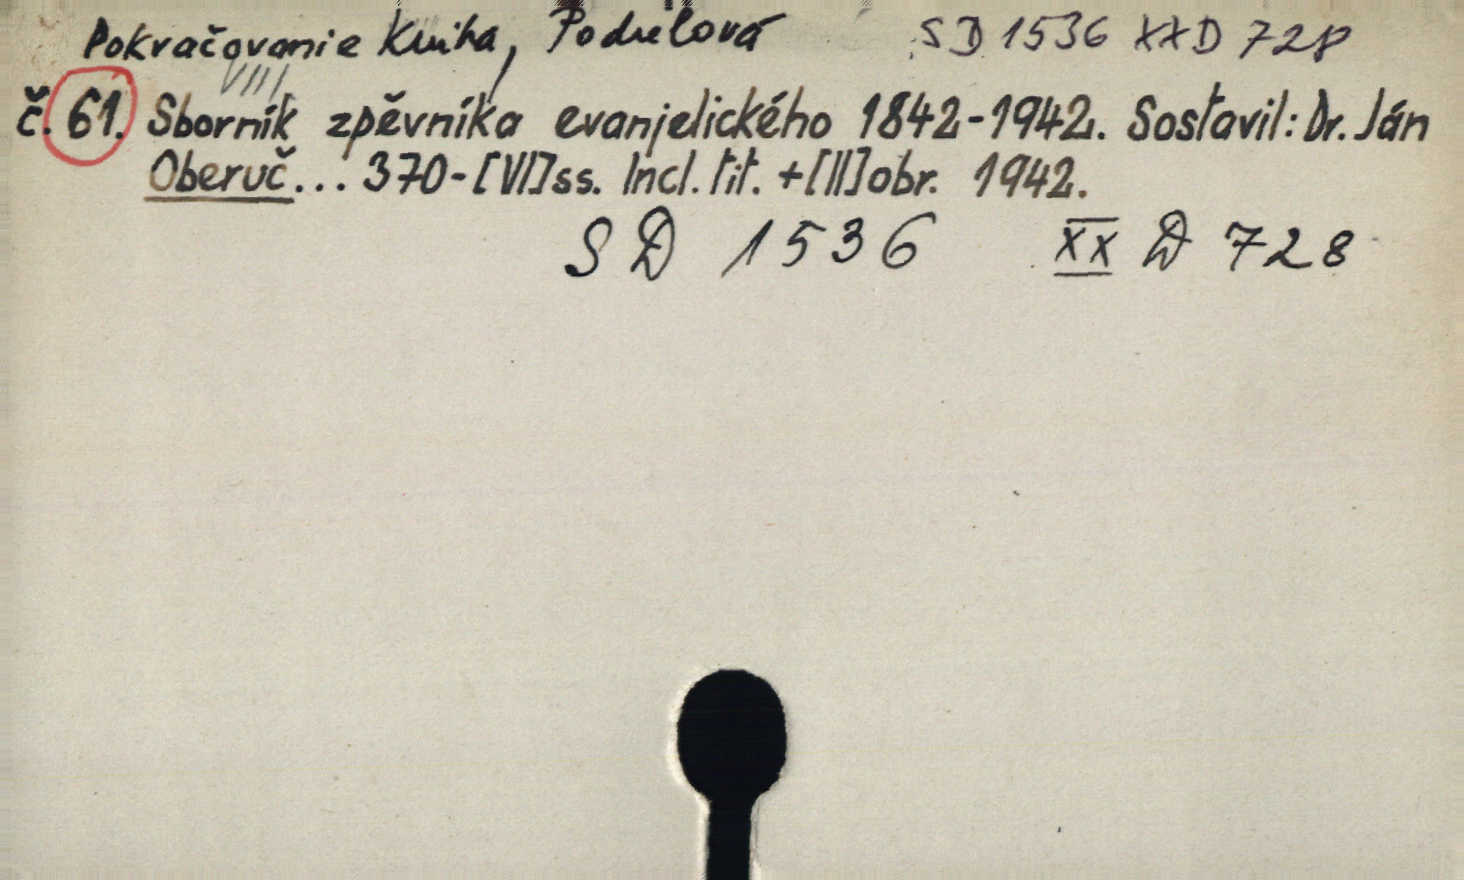 Pokračovanie Kniha, Podielová SD 1536 XXD 728
č. 61. Sborník zpěvníka evanjelického 1842-1942. Sostavil: Dr. Ján
Oberuč... 370-[VI]ss. Incl. tit. +[II]obr. 1942.
SD 1536 XX D 728